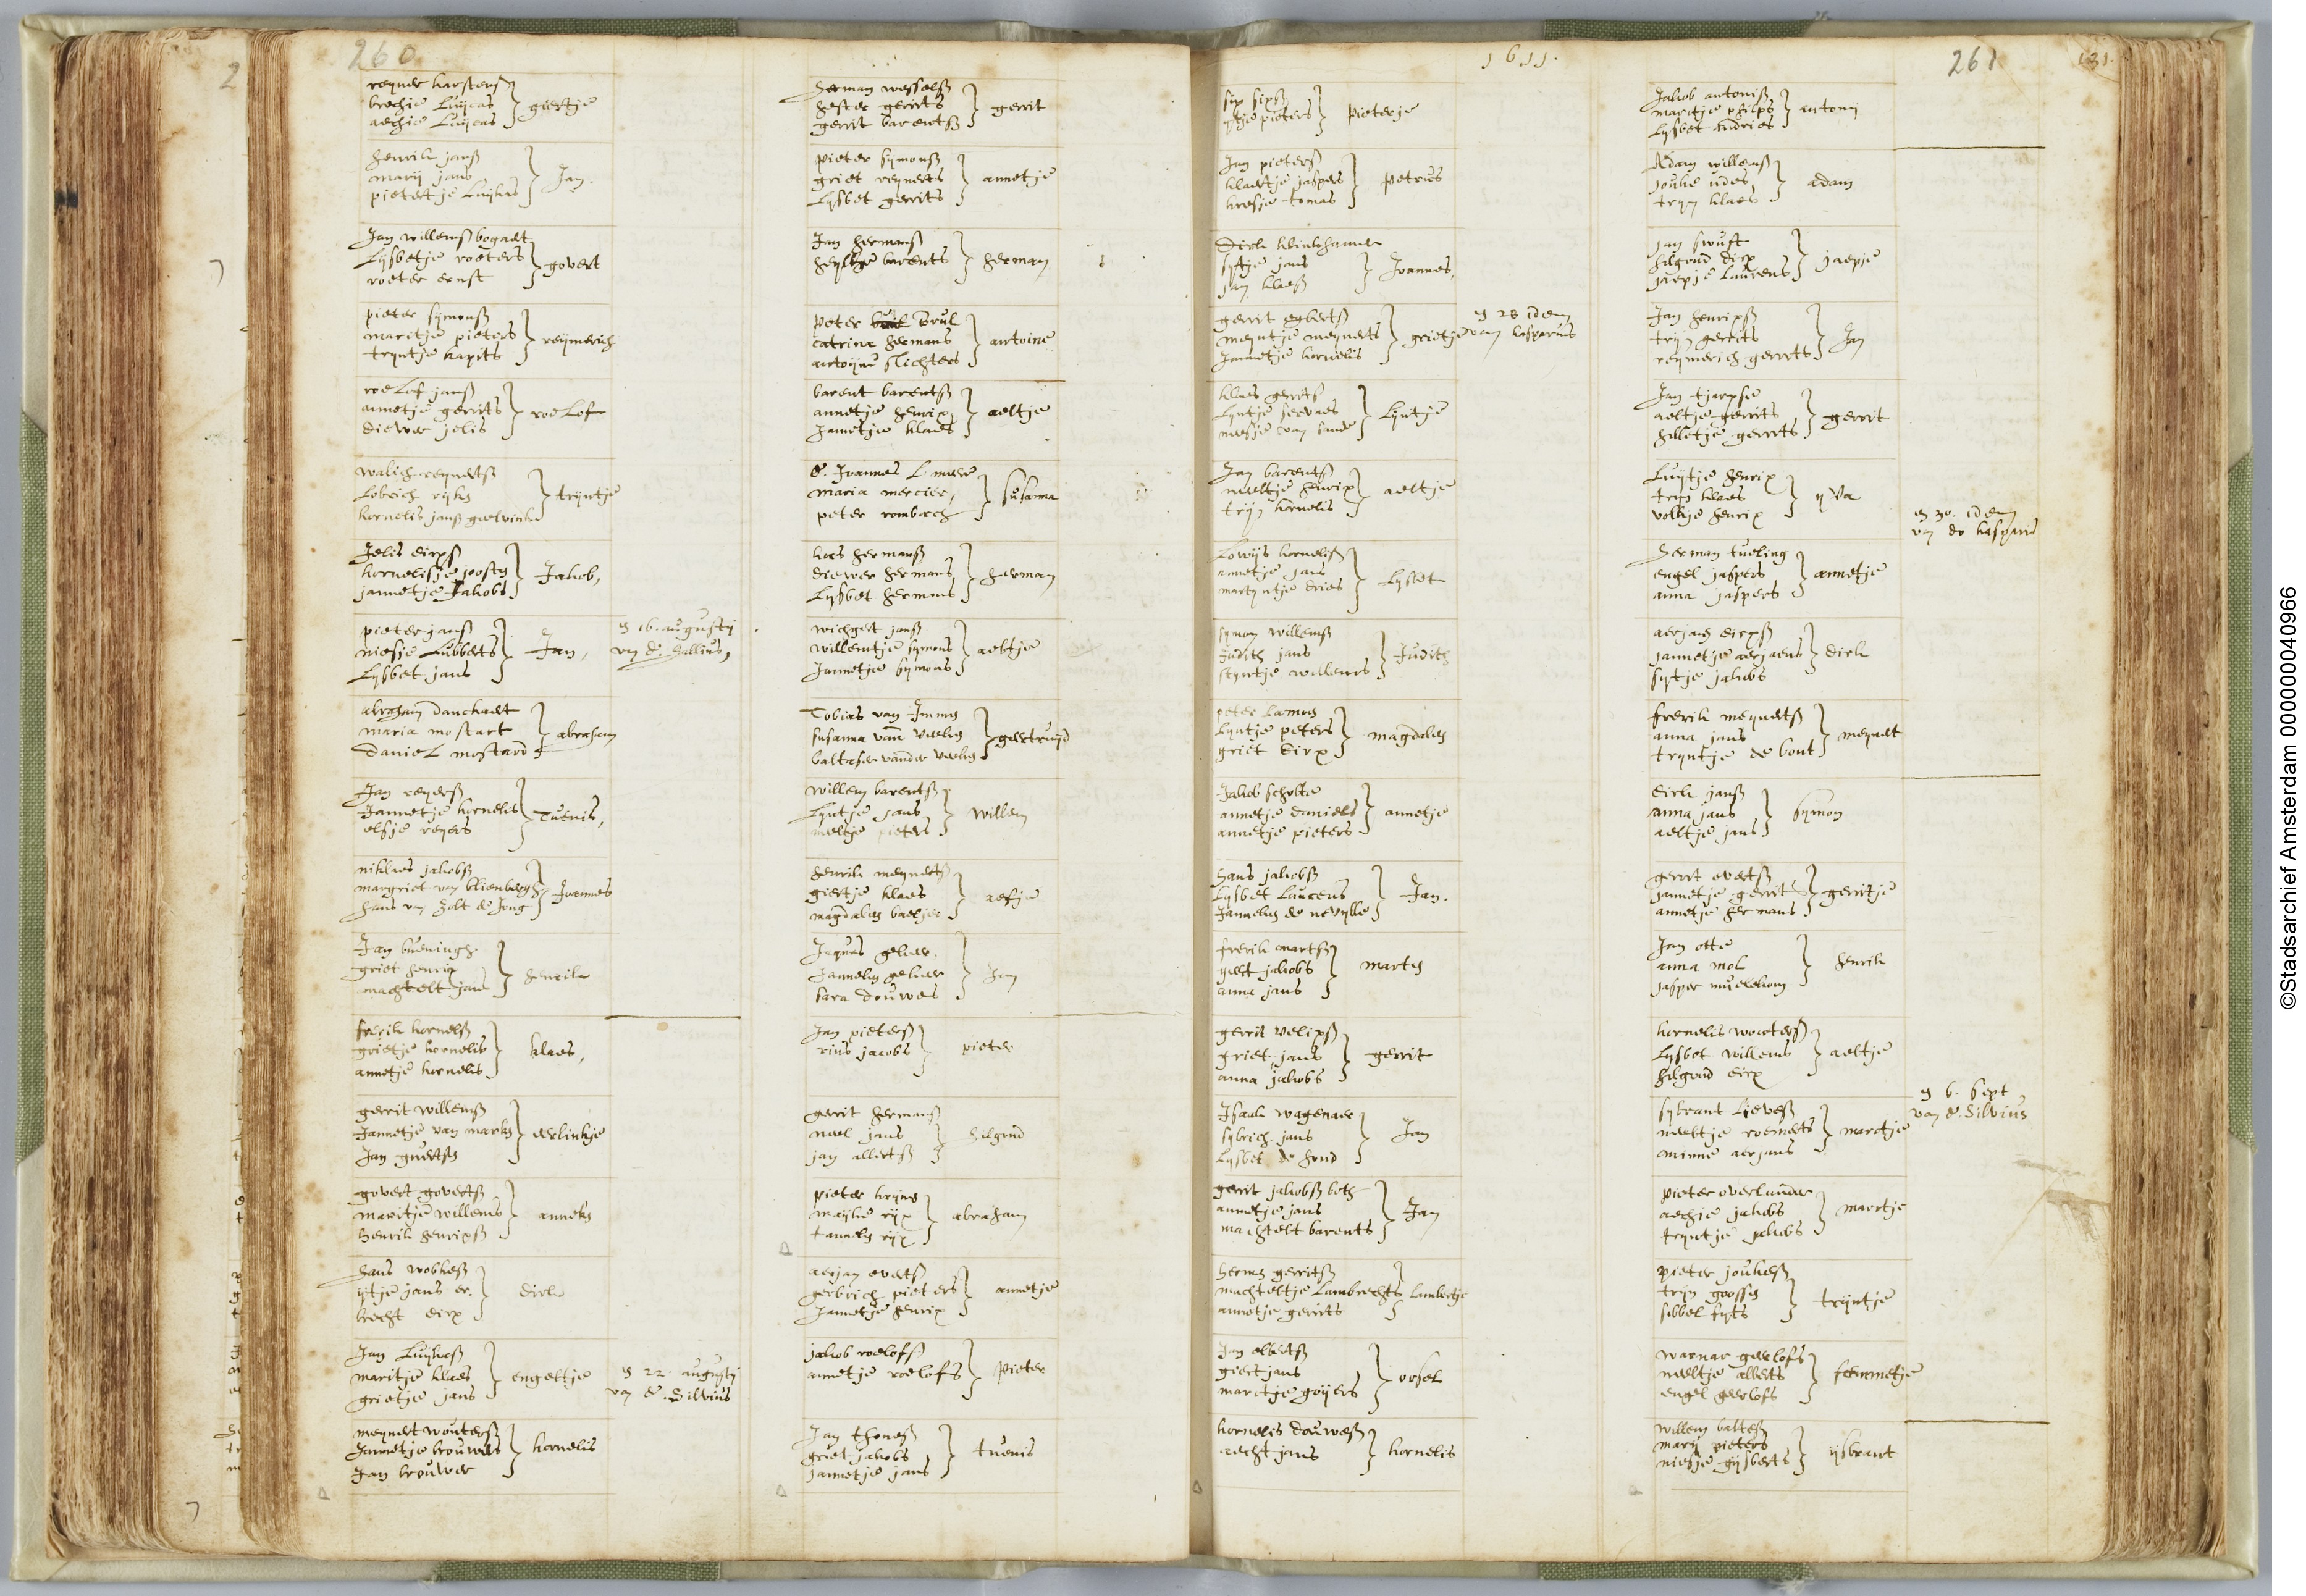 260
reyner karstensz
brechie Luijcas
aechie Luijcas
geertje
henrik jansz
marij jans
pietertje Luijkas
Jan
Jan willemsz bogaert
Lijsbetje roeters
roeter ernst
govert
pieter sijmonsz
maritje pieters
trijntje kapits
reijmerich
roelof jansz
annetje gerrits
diewer jelis
roelof
walich reijnertsz
Lobrich rijks
kornelis jansz gaelvink
trijntje
Jelis dirxsz
kornelisje joosten
jannetje Jakobs
Jakob,
pieter jansz
niesje Lubberts
Lijsbet jans
Jan,
en 16. augustij
van d. hallius,
abraham danckaert
maria mostart
daniel mostard
abraham
Jan reijersz
Jannetje kornelis
elsje reijers
Tuenis,
niklaes jakobsz
margriet van blienbergh
hans van holt de Jong
Joannes
Jan bueningh
griet henrix
machtelt jans
henrik
frerik kornelsz
grietje kornelis
annetje kornelis
klaes,
gerrit willemsz
Jannetje van marken
Jan guertsen
aerlinkje
govert govertsz
maritje willems
henrik henrixsz
anneken
hans wobkesz
ijtje jans er.
brecht dirx
dirck
Jan Luijkesz
maritje klaes
grietje jans
engeltje
en 22 augustij
van d. Silvius
meijnert woutersz
Jannetje brouwers
Jan brouwer
kornelis
herman wesselsz
hester gerrits
gerrit barentsz
gerrit
pieter sijmonsz
griet reijnerts
Lijsbet gerrits
annetje
Jan hermansz
heijltje barents
herman
peter brul
catrina hermans
antoijne slichters
antoine
barent barentsz
annetje henrix
Jannetje klaes
aeltje
d. Joannes L meer
maria mercier,
peter rombach
susanna
kors hermansz
diewer hermans
Lijsbet hermans
herman
wichert jansz
willemtje sijmons
Jannetje sijmons
aeltje
Tobias van Immen
susanna vann veelen
baltasar vander veelen
geertruijd
willem barentsz
Lijntje jans
neeltje pieters
willem
henrik meijnertsz
giertje klaes
magdalen baeljer
aefje
Jaques geluer
Janneken geluer
sara douwes
Jan
Jan pietersz
rins jacobs
pieter
gerrit hermansz
neel jans
jan allertsz
hilgond
pieter krijnen
maijke rijx
tanneken rijx
abraham
aerjan evertsz
gerbrich pieters
Jannetje henrix
annetje
jakob roelofsz
annetje roelofs
Pieter
Jan thonesz
griet jakobs
jannetje jans
tuenis
1611.
261
131.
sip sipsz
ijtje pieters
Pieterje
Jan pietersz
klaertje jaspers
kresje tomas
petrus
Dirk klinkhamer
sijtje jans
jan klaesz
Joannes,
gerrit egbertsz
meijntje meijnerts
Jannetje kornelis
grietje
en 28 idem
van kasparus
klaes gerritsz
Lijntje servaes
meesje van sande
Lijntje
Jan barentsz
neeltje henrix
trijn kornelis
aeltje
Lowijs kornelisz
annetje jans
martijntje dries
Lijsbet
sijmon willemsz
Judith jans
stijntje willems
Judith
peter Lamens
Lijntje peters
griet dirx
magdalen
Jakob scholte
annetje daniels
annetje pieters
annetje
hans jakobsz
Lijsbet Laurens
Janneken de nevylle
Jan.
frerik martsz
geert jakobs
anna jans
marten
gerrit velipsz
griet jans
anna jakobs
gerrit
Isaak wagenaer
sijbrich jans
Lijsbet de hond
Jan
gerrit jakobsz both
annetje jans
machtelt barents
Jan
hermen gerritsz
machteltje Lambrechts
annetje gerrits
Lambertje
Jan elbertsz
giert jans
maritje goijers
orsel
kornelis douwesz
aecht jans
kornelis
Jakob antonisz
maritje philps
Lijsbet Andries
antonij
Adam willemsz
jouke udes
trijn klaes
adam
Jan swift
hilgond dirx
jaepje Laurens
jaepje
Jan henrixsz
trijn gerrits
reijmerich gerrits
Jan
Jan tjerpsje
aeltje gerrits
hilletje gerrits
gerrit
Luijtje henrix
trijn klaes
volkje henrix
ijva
en 30. idem
van do kasparus
Herman tueling
engel jaspers
anna jaspers
annetje
aerjaen dirxsz
jannetje aerjaens
sijtje jakobs
dirk
frerik meijnertsz
anna jans
trijntje de bout
meijnert
dirk jansz
anna jans
aeltje jans
sijmon
gerrit evertsz
jannetje gerrits
annetje hermans
gerritje
Jan otte
anna mol
jasper muelekom
henrik
kornelis woutersz
Lijsbet willems
hilgond dirx
aeltje
en 6. Sept
van d. Silvius
sijbrant Lievesz
neeltje roemerts
minne aerjans
maritje
pieter overlander
aechje jakobs
trijntje jakobs
maertje
pieter joukesz
trijn goossen
sibbel fijts
trijntje
warnar geerlofs
neeltje allerts
engel geerlofs
femmetje
willem baltesz
marij pieters
niesje gijsberts
ijsbrant
©Stadsarchief Amsterdam 000000040966